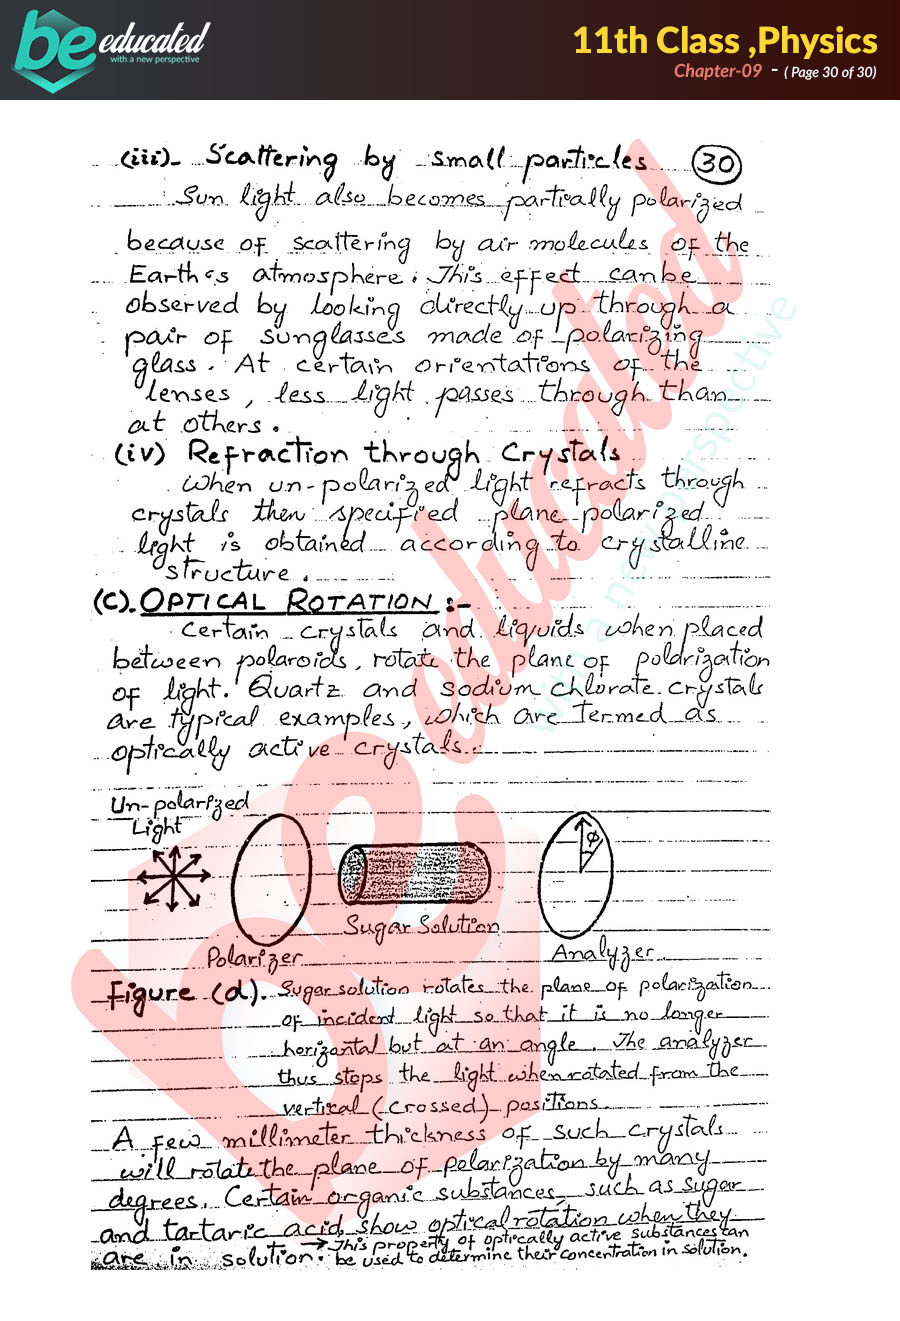 be educated
with a new perspective
11th Class ,Physics
Chapter-09 - ( Page 30 of 30)
(iii)- Scattering by small particles 30
Sun light also becomes partially polarized
because of scattering by air molecules of the
Earth's atmosphere. This effect can be
observed by looking directly up through a
pair of sunglasses made of polarizing
glass. At certain orientations of the
lenses, less light passes through than
at others.
(iv) Refraction through Crystals
When un-polarized light refracts through
crystals then specified plane-polarized
light is obtained according to crystalline
structure.
(C). OPTICAL ROTATION :-
Certain crystals and liquids when placed
between polaroids, rotate the plane of polarization
of light. Quartz and sodium chlorate crystals
are typical examples, which are termed as
optically active crystals.
Un-polarized
Light
ϕ
Sugar Solution
Polarizer
Analyzer
Figure (d). Sugar solution rotates the plane of polarization
of incident light so that it is no longer
horizontal but at an angle. The analyzer
thus stops the light when rotated from the
vertical (crossed) positions.
A few millimeter thickness of such crystals
will rotate the plane of polarization by many
degrees. Certain organic substances, such as sugar
and tartaric acid, show optical rotation when they
are in solution. → This property of optically active substances can
be used to determine their concentration in solution.
be educated
with a new perspective